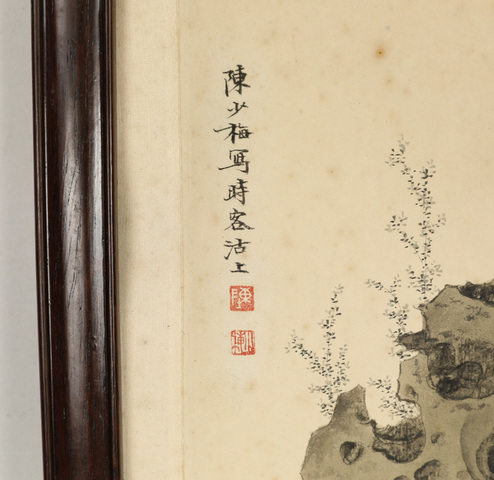 陳少梅寫時客沽上
陳